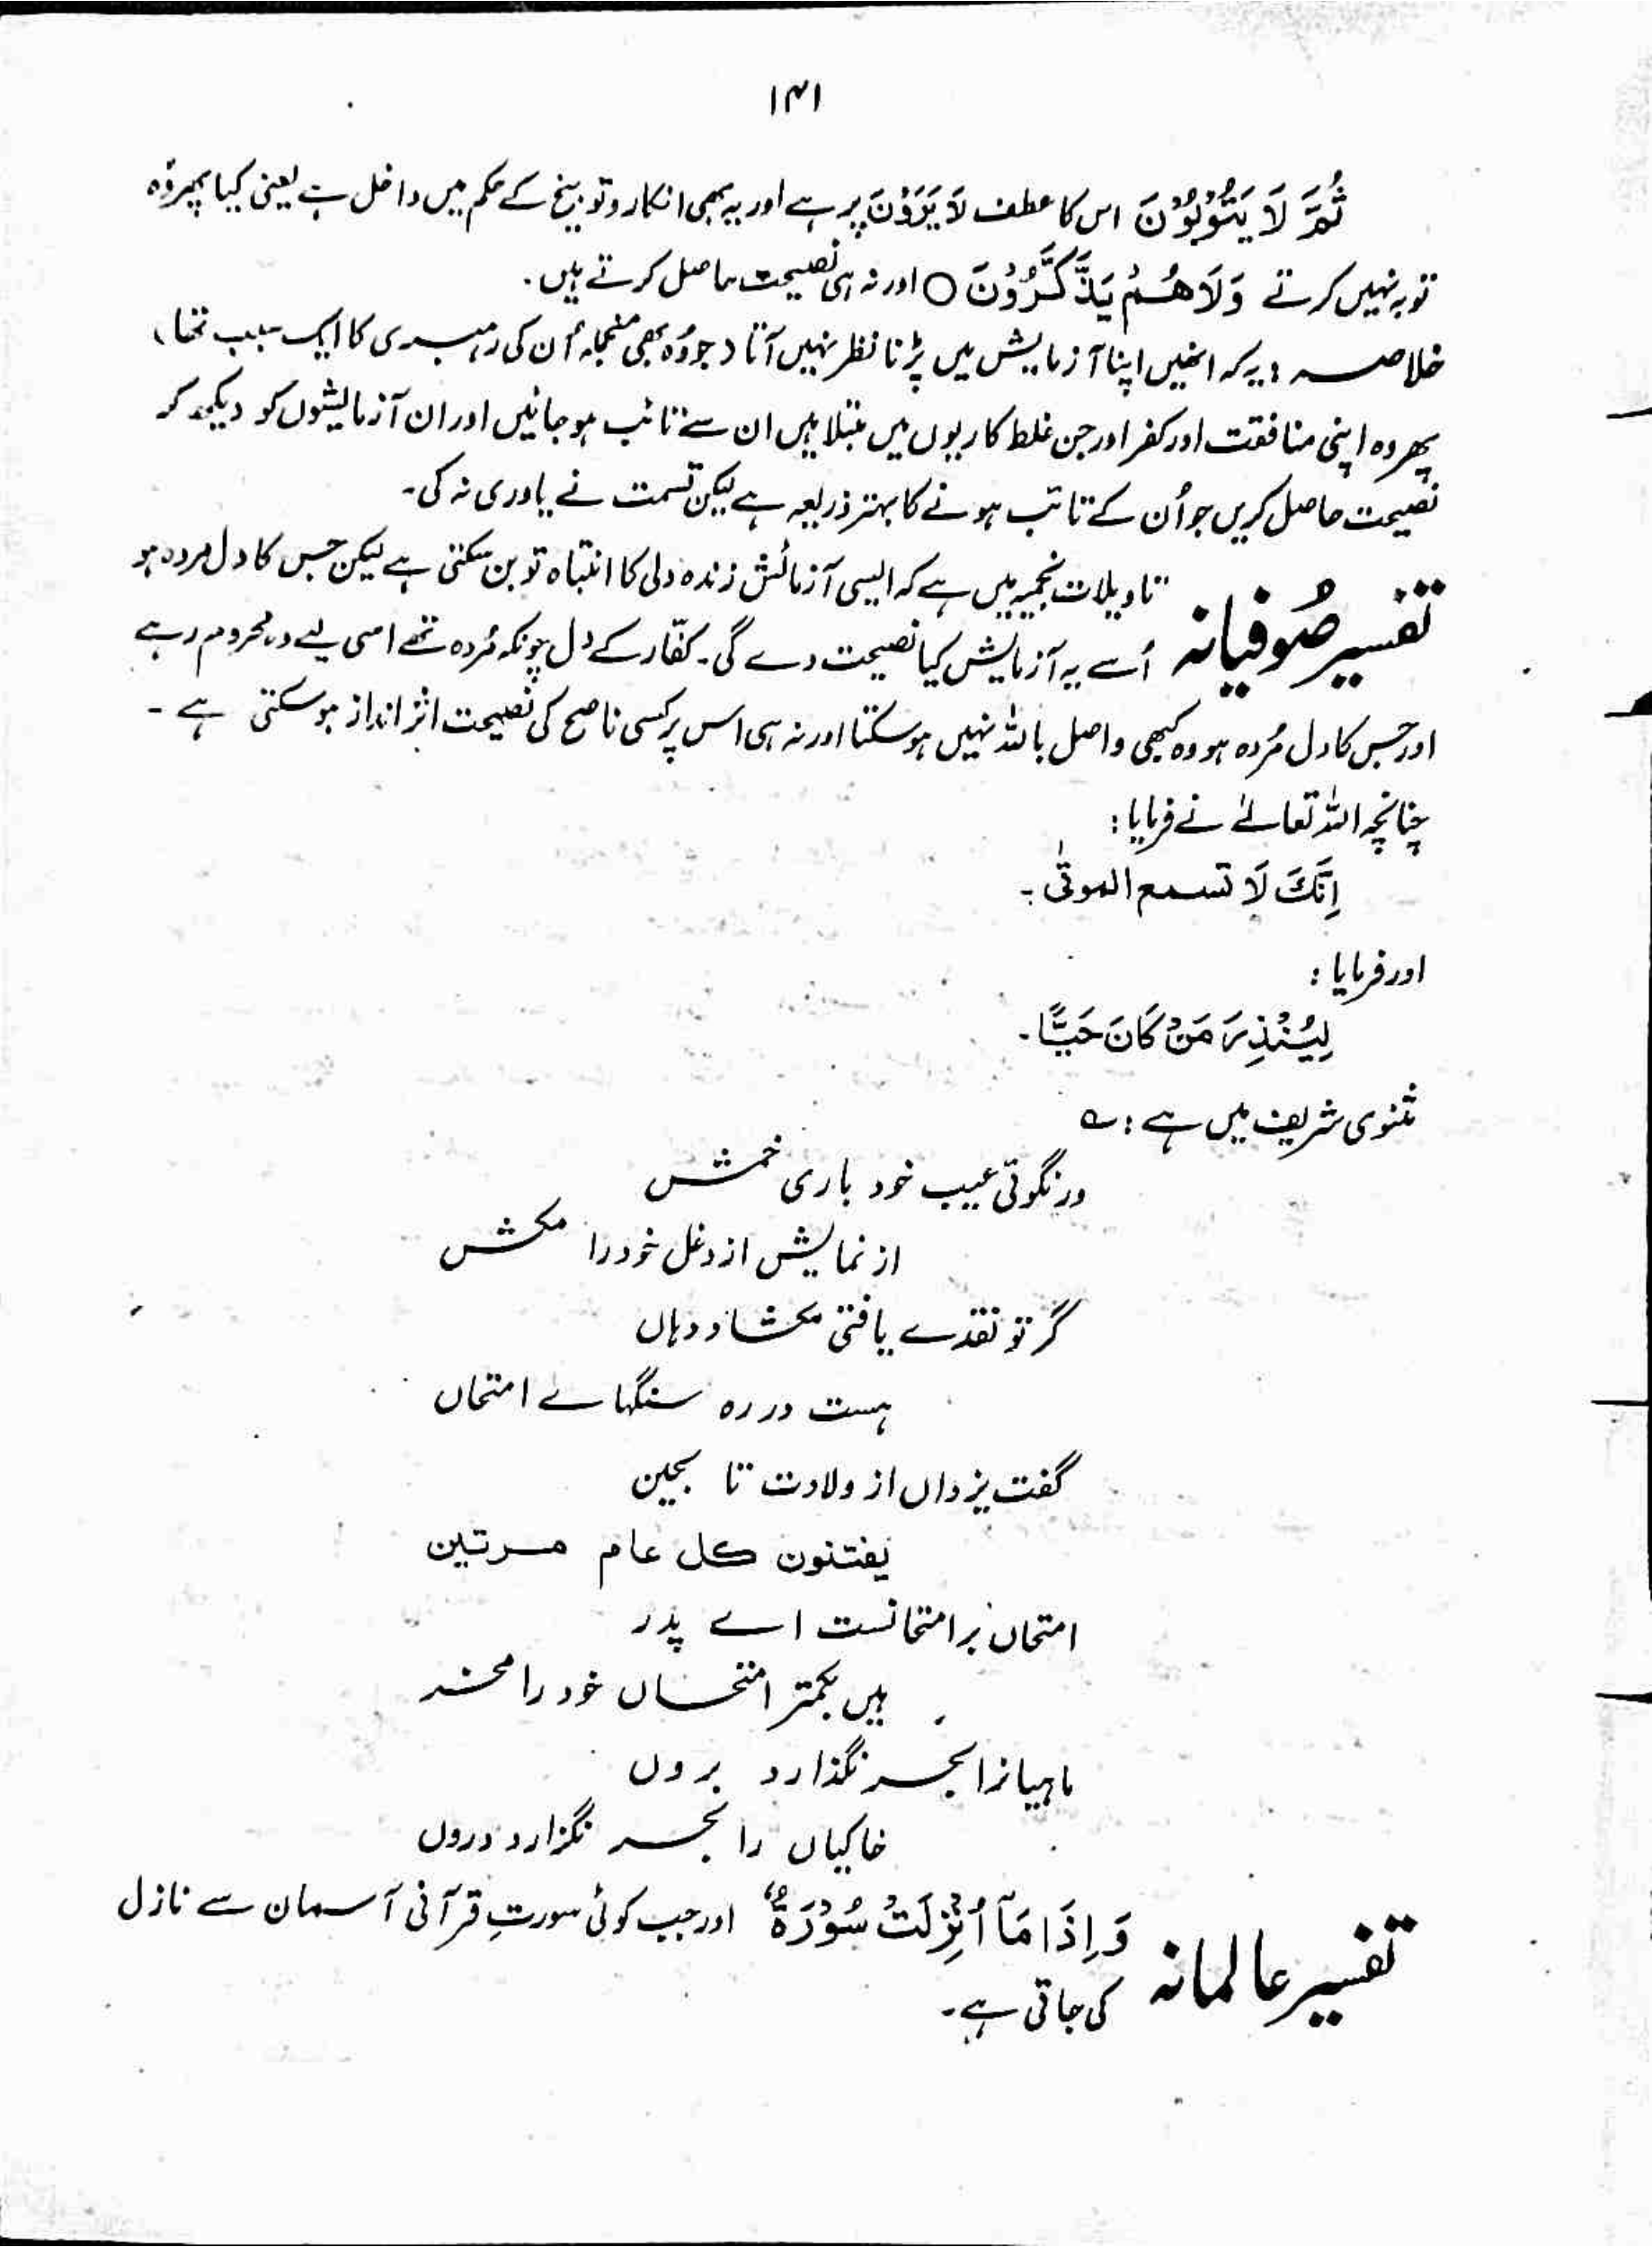 ۱۴۱
ثُمَّ لَا یَتُوْبُوْنَ اس کا عطف لَا یَرَوْنَ پر ہے اور یہ بھی انکار و توبیخ کے حکم میں داخل ہے یعنی کیا پھر وُہ
توبہ نہیں کرتے وَلَا هُمْ یَذَّكَّرُوْنَ ○ اور نہ ہی نصیحت حاصل کرتے ہیں۔
خلاصہ : یہ کہ انھیں اپنا آزمایش میں پڑنا نظر نہیں آتا (جو وُہ بھی منجملہ اُن کی رہبری کا ایک سبب تھا)
پھر وہ اپنی منافقت اور کفر اور جن غلط کاریوں میں مبتلا ہیں ان سے تائب ہو جائیں اور ان آزمایشوں کو دیکھ کر
نصیحت حاصل کریں جو اُن کے تائب ہونے کا بہتر ذریعہ ہے لیکن قسمت نے یاوری نہ کی۔
تفسیر صُوفیانہ تاویلات نجمیہ میں ہے کہ ایسی آزمائش زندہ دلی کا انتباہ تو بن سکتی ہے لیکن جس کا دل مردہ ہو
اُسے یہ آزمایش کیا نصیحت دے گی۔ کفّار کے دل چونکہ مُردہ تھے اسی لیے وہ محروم رہے
اور جس کا دل مُردہ ہو وہ کبھی واصل باللہ نہیں ہو سکتا اور نہ ہی اس پر کسی ناصح کی نصیحت اثر انداز ہو سکتی ہے ۔
چنانچہ اللہ تعالےٰ نے فرمایا :
اِنَّكَ لَا تسمع الموتٰی ۔
اور فرمایا :
لِیُنْذِرَ مَنْ كَانَ حَیًّا ۔
مثنوی شریف میں ہے : ؎
ور نگوئی عیب خود باری خمش
از نمایش از دغل خود را مکش
گر تو نقدے یافتی مکشاد دہاں
ہست در رہ سنگہاے امتحاں
گفت یزداں از ولادت تا بحین
یفتنون كل عام مرتین
امتحاں بر امتحانست اے پدر
ہیں بکمتر امتحاں خود را مخر
ماہیانرا بحر نگذارد بروں
خاکیاں را بحر نگزارد دروں
تفسیر عالمانہ وَاِذَا مَاۤ اُنْزِلَتْ سُوْرَةٌ اور جب کوئی سورتِ قرآنی آسمان سے نازل
کی جاتی ہے۔